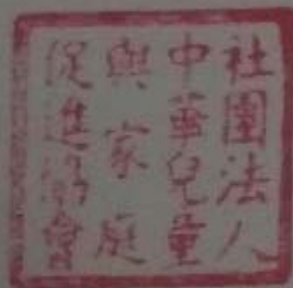 社團法人
中華兒童
與家庭
促進協會